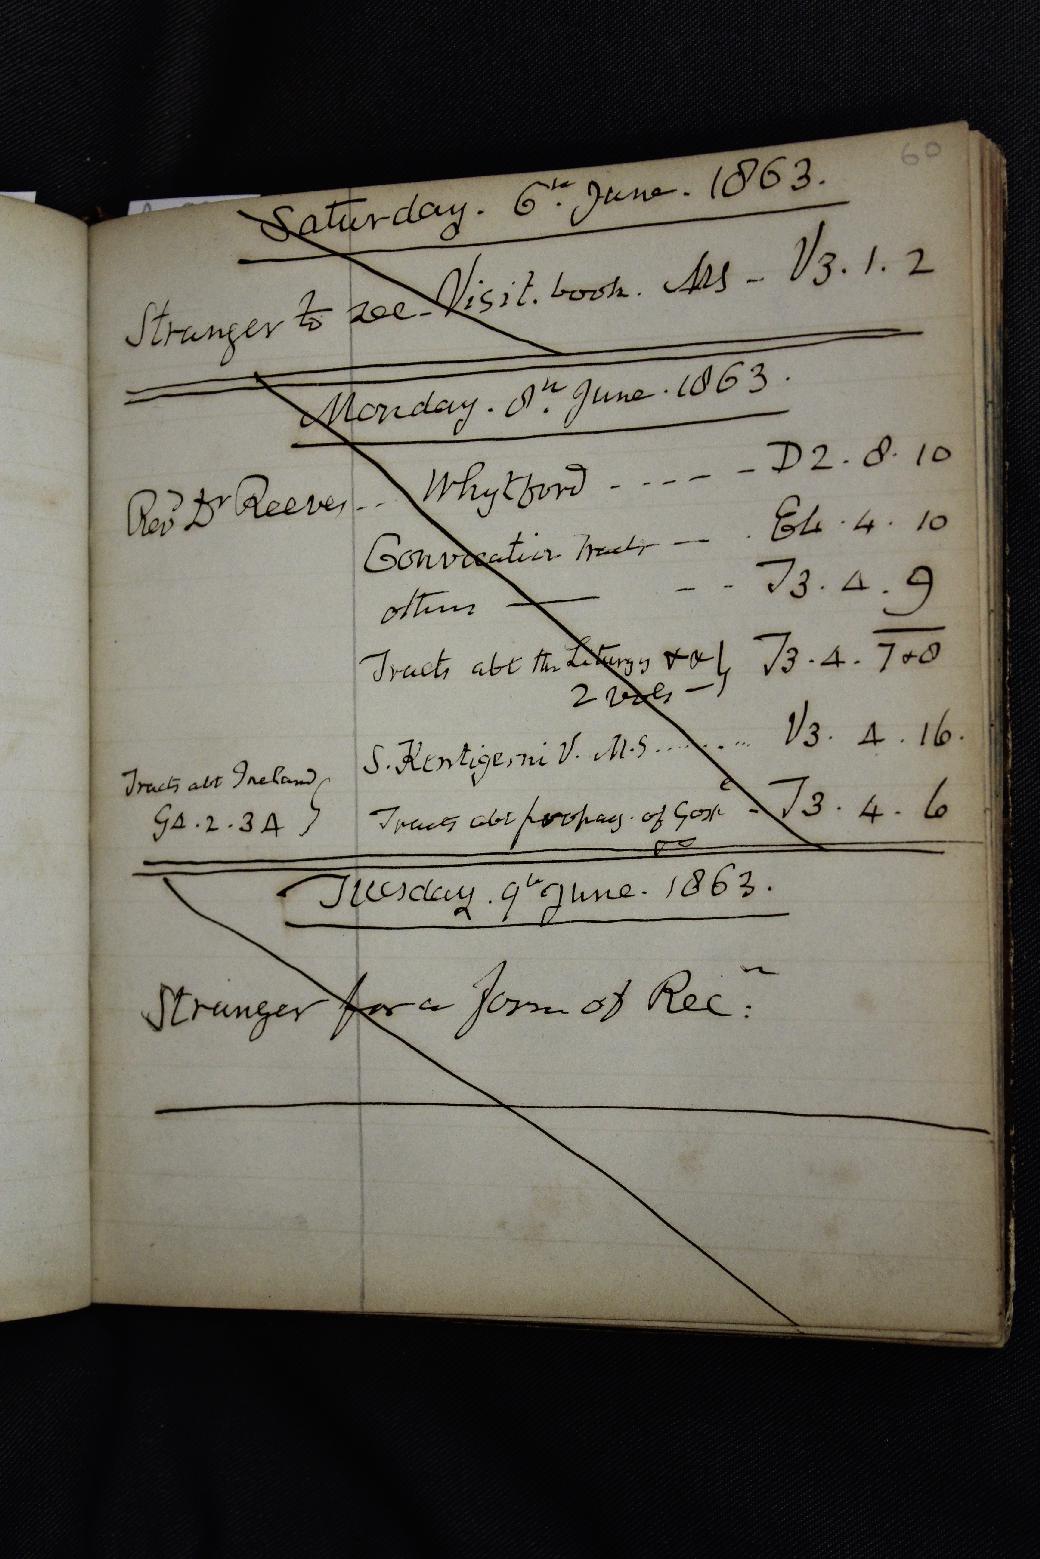 60
Saturday. 6th. June. 1863.
Stranger to see - Visit. book. MS - V3.1.2
Monday. 8th. June. 1863.
Revd Dr Reeves... Whytford ----- D2.8.10
Convocation Tracts -- E4.4.10
others — -- T3.4.9
Tracts abt the Liturgy &c } T3.4.7+8
2 vols -
S. Kentigerni V. MS........ V3.4.16.
Tracts abt Ireland }
G4.2.34
Tracts abt propag. of Gospe - T3.4.6
&c
Tuesday. 9th June. 1863.
Stranger for a form of Recn: